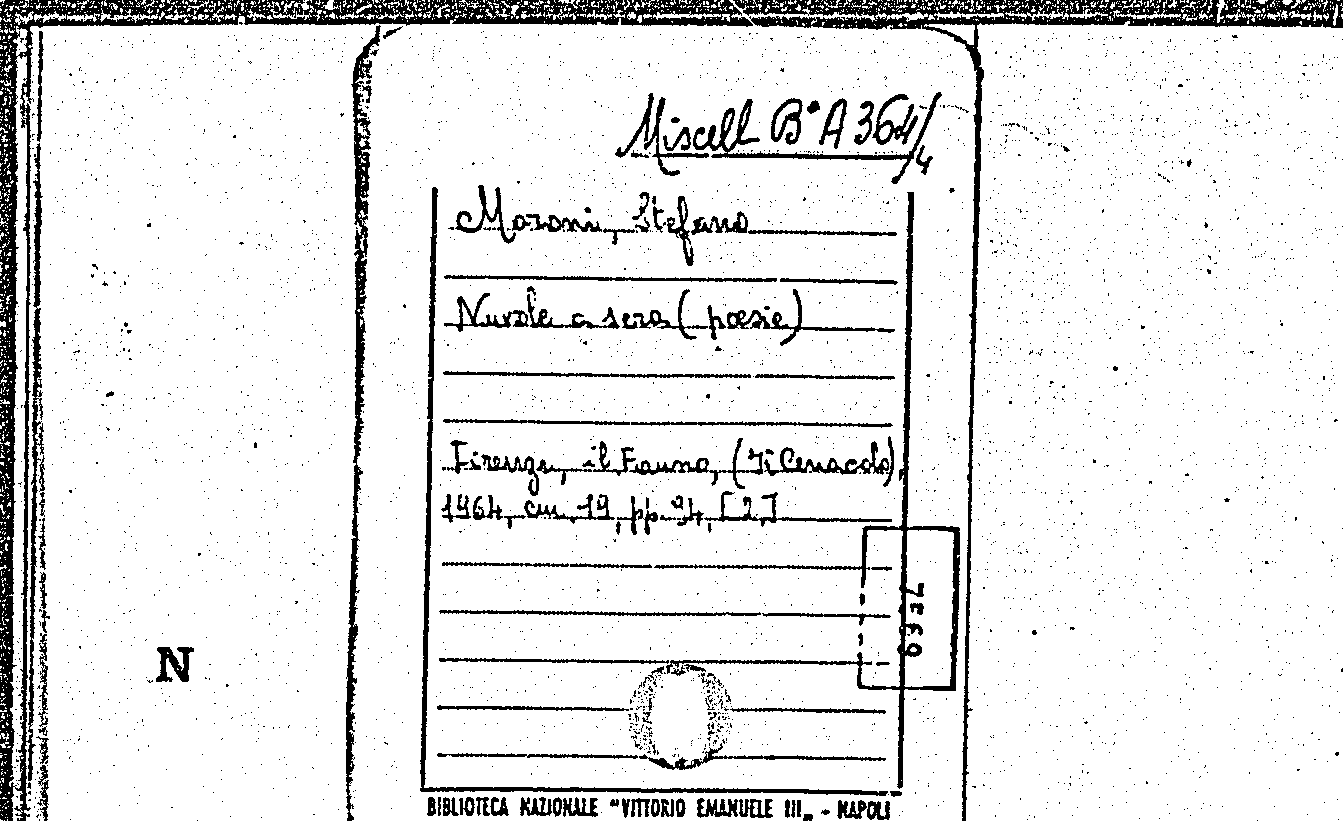 Miscell B*A 364/4
Maroni, Stefano
Nuvole a sera (poesie)
Firenze, il Fauno, (Il Cenacolo),
1964, cm. 19, pp. 94, [2]
N
BIBLIOTECA NAZIONALE "VITTORIO EMANUELE III„ - NAPOLI